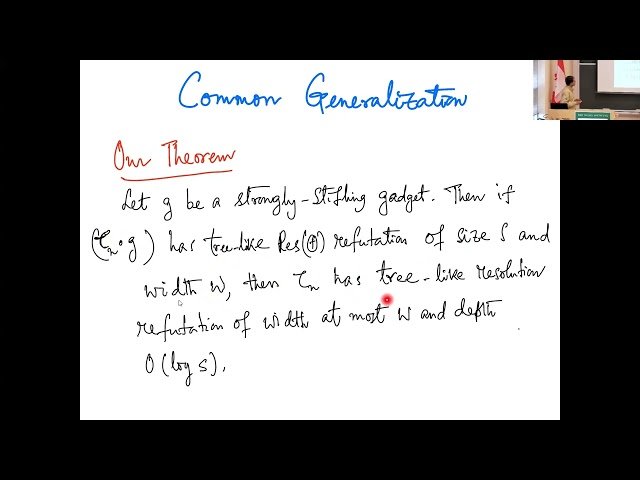 Common Generalization
Our Theorem
Let g be a strongly-stifling gadget. Then if
(τₙ∘g) has tree-like Res(⊕) refutation of size s and
width w, then τₙ has tree-like resolution
refutation of width at most w and depth
O(log s).